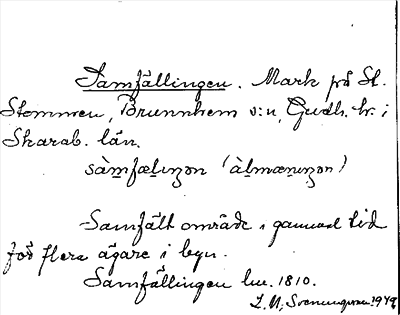 Samfällingen. Mark på St.
Stommen, Brunnhem s:n, Gudh. hr: i
Skarab. län.
sàmfæliŋən (àlmæniŋən)
Samfällt område i gammal tid
för flera ägare i byn.
Samfällingen lm. 1810.
L. M. Svenungsson 1949